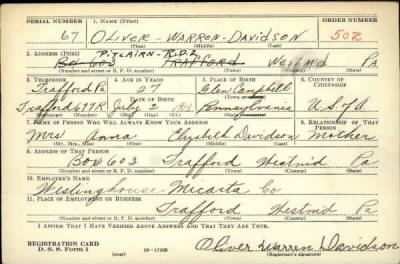 SERIAL NUMBER 1. NAME (Print) ORDER NUMBER
67 OLIVER - WARREN - DAVIDSON 502
(First) (Middle) (Last)
2. ADDRESS (Print) PITCAIRN - R.D.2
BOX 603 TRAFFORD Westmd PA
(Number and street or R. F. D. number) (Town) (County) (State)
3. TELEPHONE 4. AGE IN YEARS 5. PLACE OF BIRTH 6. COUNTRY OF CITIZENSHIP
Trafford Pa 27 Glen Campbell
DATE OF BIRTH
Trafford 677R July 2 1913 Pennsylvania U.S. of A
(Exchange) (Number) (Mo.) (Day) (Yr.) (State or country)
7. NAME OF PERSON WHO WILL ALWAYS KNOW YOUR ADDRESS 8. RELATIONSHIP OF THAT PERSON
Mrs Anna Elizabeth Davidson Mother
(Mr., Mrs., Miss) (First) (Middle) (Last)
9. ADDRESS OF THAT PERSON
Box 603 Trafford Westmd Pa
(Number and street or R. F. D. number) (Town) (County) (State)
10. EMPLOYER'S NAME
Westinghouse - Micarta Co
11. PLACE OF EMPLOYMENT OR BUSINESS
Trafford Westmd Pa
(Number and street or R. F. D. number) (Town) (County) (State)
I AFFIRM THAT I HAVE VERIFIED ABOVE ANSWERS AND THAT THEY ARE TRUE.
REGISTRATION CARD
D. S. S. Form 1 (over) Oliver Warren Davidson
(Registrant's signature)